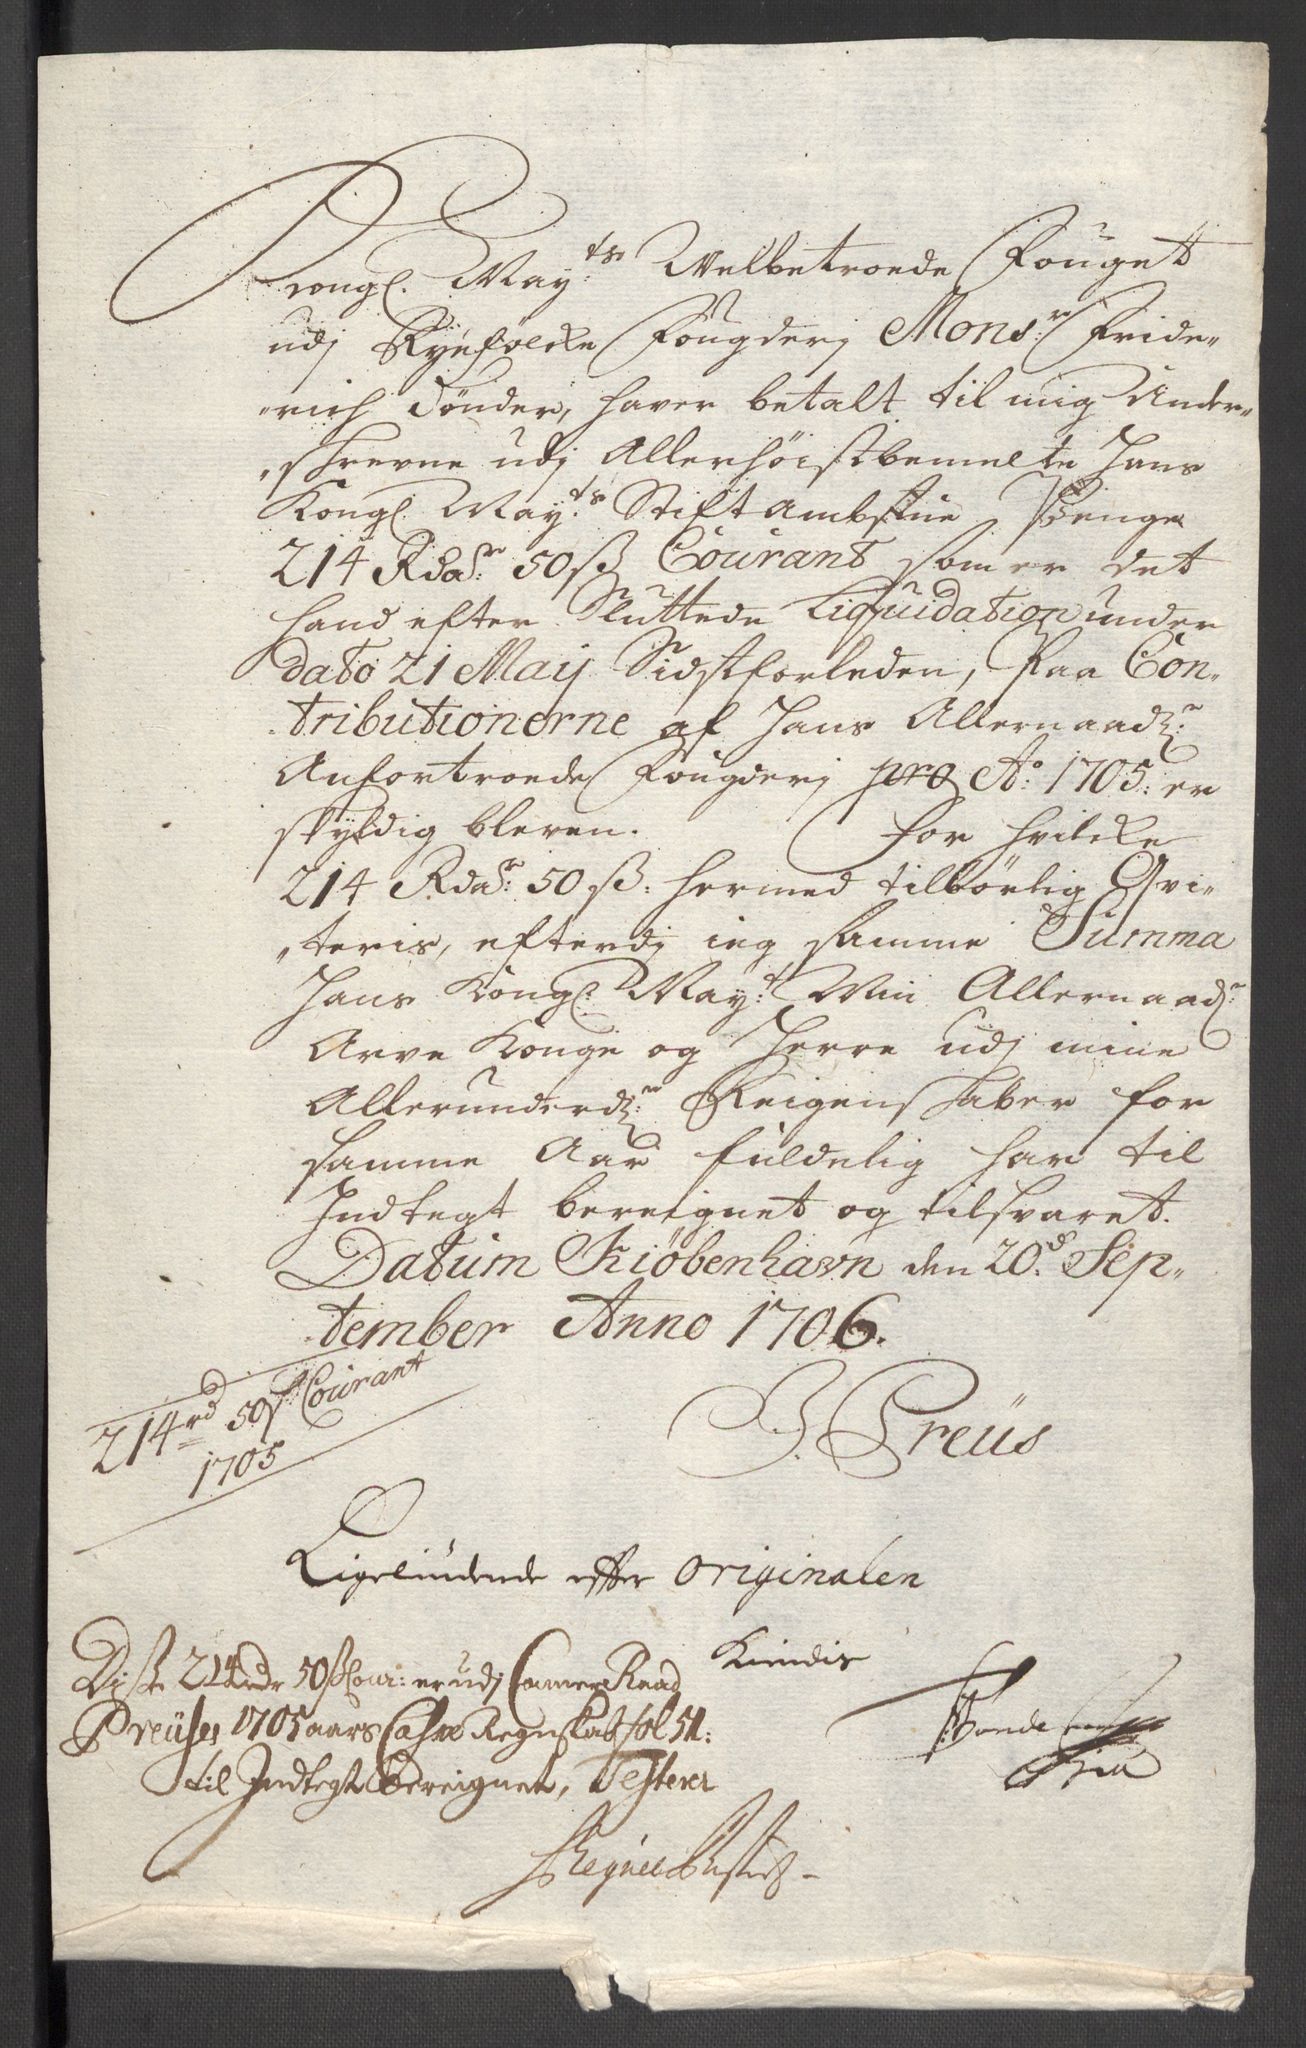 Kongl. May.ts Welbetroede Fouget
udj Ryefolcke Fougderj Mons.r Fride„
„rich Tönder, hafver betalt til mig Under„
„skrevne udj Allerhöistbemelte Hans
Kongl. May.ts Stiftambstue Penge
214 Rdr. 50 ß Courant som er det
hand efter Sluttede Liquidation under
dato 21 Maij Sidstforleden, paa Con„
tributionerne af Hans Allernaad.
Anfortroede Fougderj pro Ao. 1705. er
skyldig bleven. For hvilcke
214 Rdr. 50 ß. hermed tilbörlig Qvi„
„teris, efterdj ieg samme Summa
Hans Kongl. May.t Min Allernaad.
Arve Konge og Herre udj mine
Allerunderd. Reigenskaber for
samme Aar fuldelig har til
Indtegt bereignet og tilsvaret.
Datum Kiöbenhavn den 20.de Sep„
tember Anno 1706.
J. Preüs
214 rd 50 ß Courant
1705
Ligelüdende effter originalen
Kiendis
Disse 214 rdr 50 ß Cour: er udj Camer Raad
Preüses 1705 aars Cahsse Regnskab fol 51:
til Indtegt Bereignet, Testerer